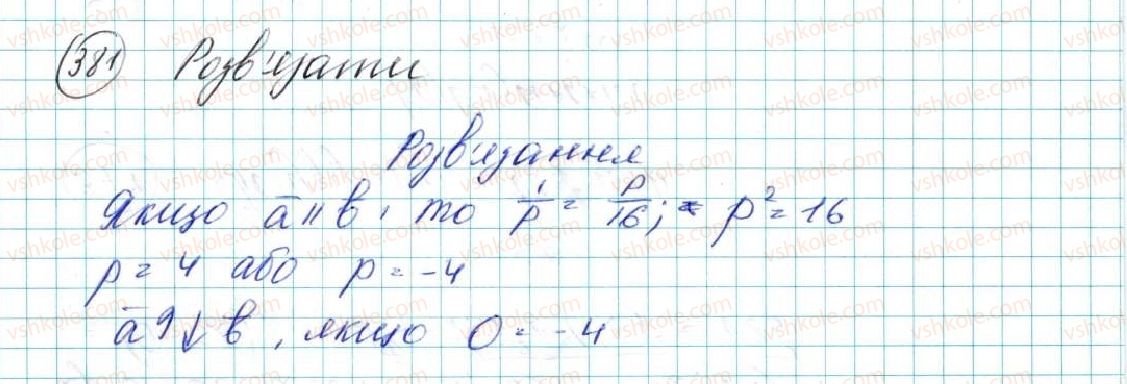 381 Розв'язати
Розв'язання
Якщо a̅ || b, то 1/p = p/16; p² = 16
p = 4 або p = -4
a̅ ↑↓ b, якщо 0 = -4